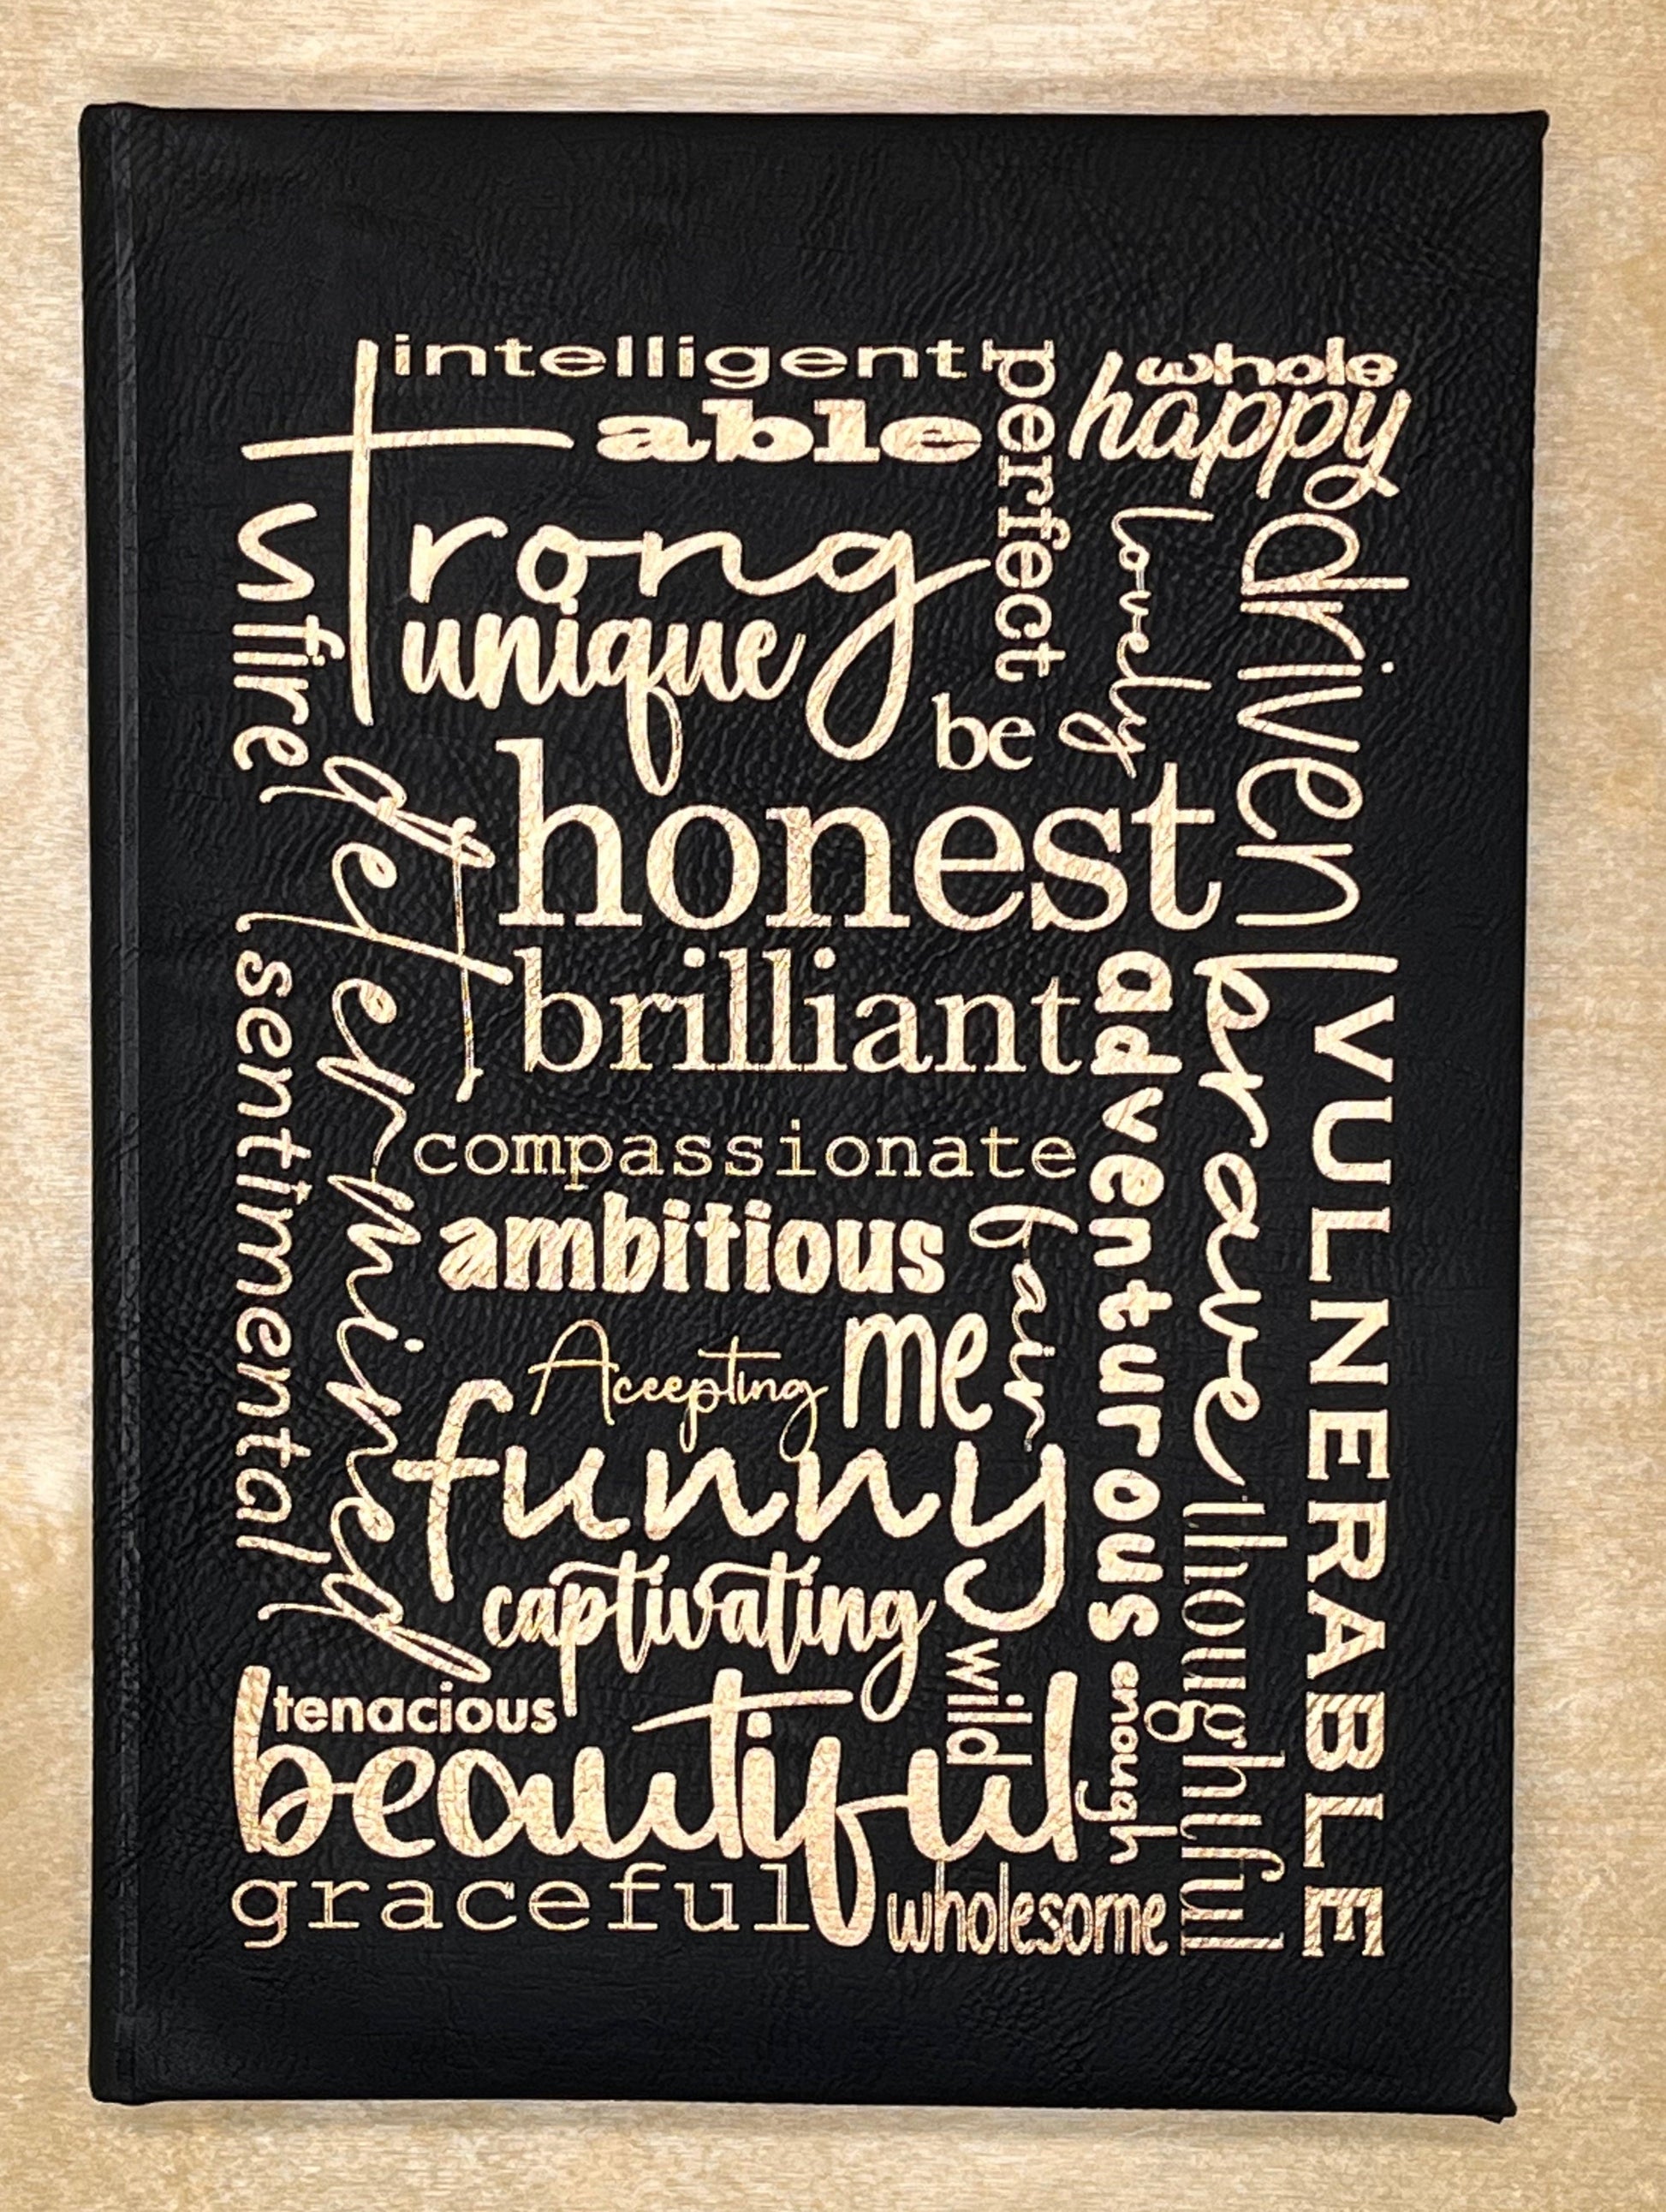 intelligent
perfect
whole
happy
able
strong
unique
lovely
driven
fire
be
honest
determined
brilliant
adventurous
brave
VULNERABLE
sentimental
compassionate
ambitious
Accepting
me
funny
captivating
wild
thoughtful
enough
tenacious
beautiful
graceful
wholesome